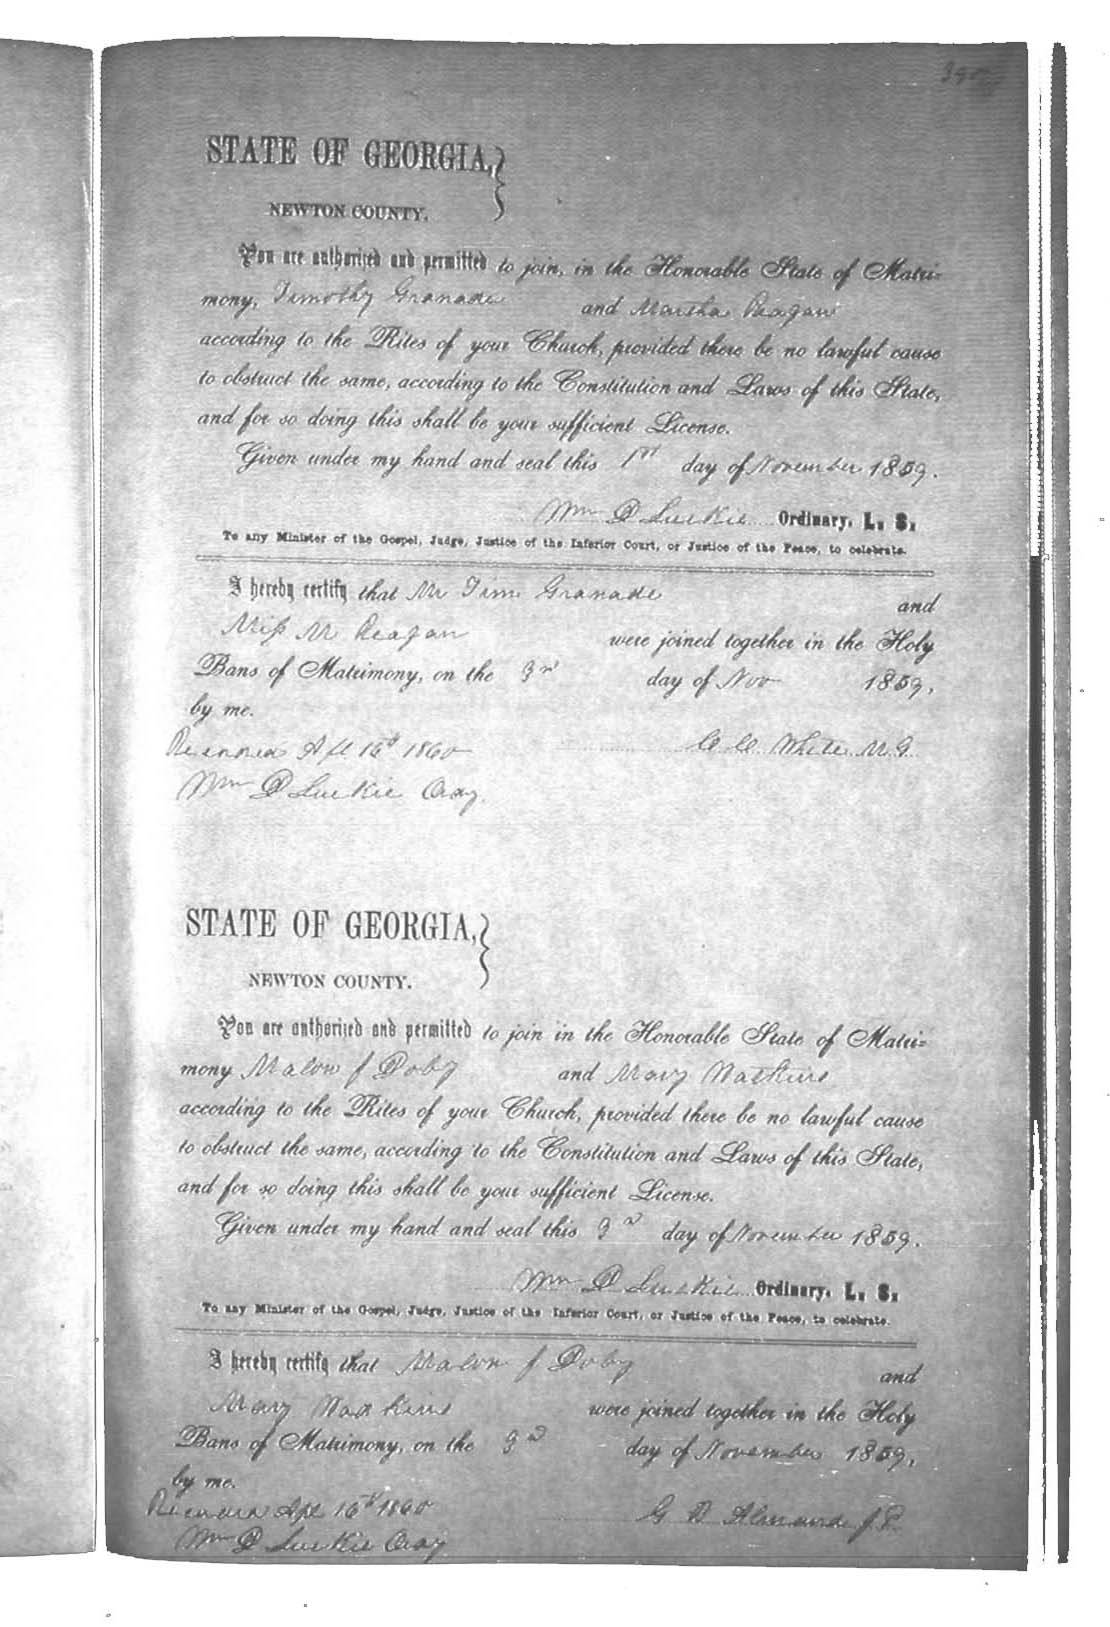 STATE OF GEORGIA,
NEWTON COUNTY.
You are authorized and permitted to join, in the Honorable State of Matri-
mony, Timothy Granade and Martha Reagan
according to the Rites of your Church, provided there be no lawful cause
to obstruct the same, according to the Constitution and Laws of this State,
and for so doing this shall be your sufficient License.
Given under my hand and seal this 1st day of November 1859.
Wm D Luckie Ordinary. L. S.
To any Minister of the Gospel, Judge, Justice of the Inferior Court, or Justice of the Peace, to celebrate.
I hereby certify that Mr Tim Granade and
Miss M Reagan were joined together in the Holy
Bans of Matrimony, on the 3rd day of Nov 1859,
by me.
Recorded Apl 16th 1860 White M. G.
Wm D Luckie Ordy.
STATE OF GEORGIA,
NEWTON COUNTY.
You are authorized and permitted to join in the Honorable State of Matri-
mony Malon J Doby and Mary Watkins
according to the Rites of your Church, provided there be no lawful cause
to obstruct the same, according to the Constitution and Laws of this State,
and for so doing this shall be your sufficient License.
Given under my hand and seal this 3d day of November 1859.
Wm D Luckie Ordinary. L. S.
To any Minister of the Gospel, Judge, Justice of the Inferior Court, or Justice of the Peace, to celebrate.
I hereby certify that Malon J Doby and
Mary Watkins were joined together in the Holy
Bans of Matrimony, on the 3d day of November 1859,
by me.
Recorded Apl 16th 1860 G D Almand J. P.
Wm D Luckie Ordy